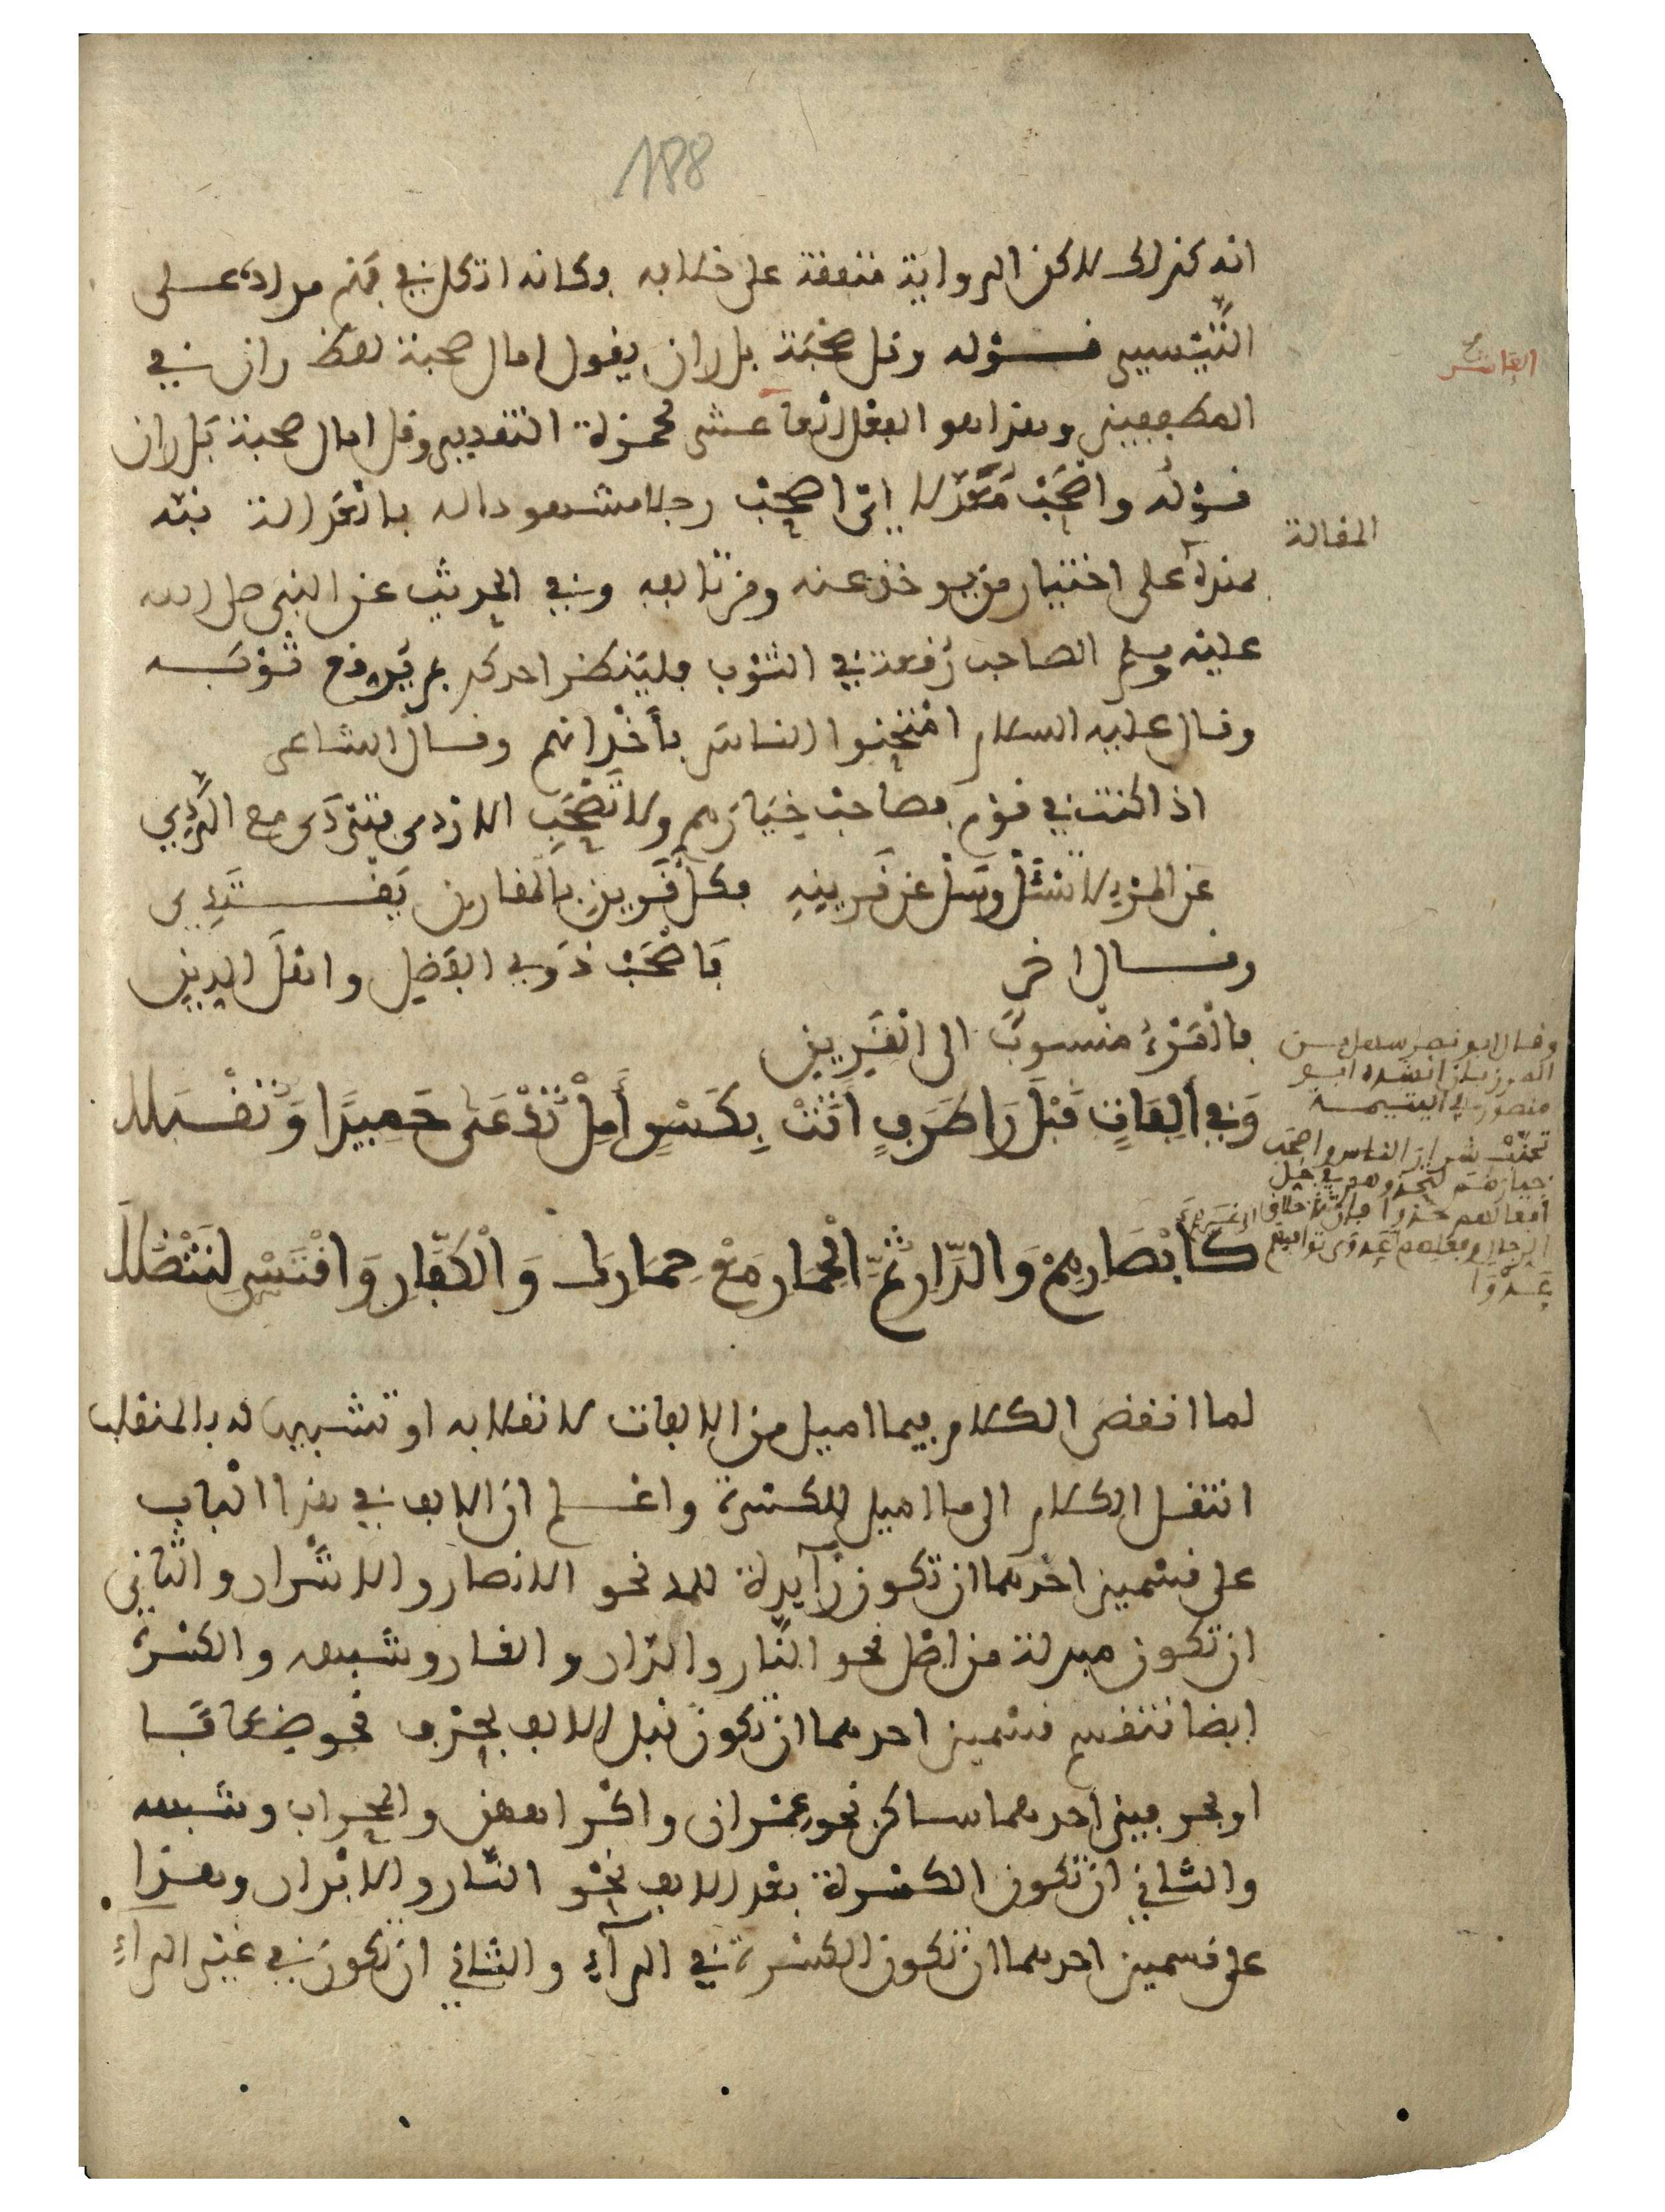 188
انه كذلك لاكن الرواية متفقة على خلافه وكانه اتكل في فهم مراده على
التيسير قوله وقل صحبة بل ران يقول امال صحبة لفظ ران في
المطففين وهذا هو الفعل العاشر لحمزة التقدير وقل امال صحبة بل ران
قوله واصحب معدلا اي اصحب رجلا مشهودا له بالعدالة نبه
بهذا على اختيار من يوخذ عنه ومن تالفه وفي الحديث عن النبي صلى الله
عليه وسلم الصاحب رقعة في الثوب فلينظر احدكم بم يرقع ثوبه
وقال عليه السلام امتحنوا الناس باخدانهم وقال الشاعر
اذا كنت في قوم فصاحب خيارهم ولا تصحب الاردى فتردى مع الردي
عن المرء لا تسئل وسل عن قرينه فكل قرين بالمقارن يقتدي
وقال اخر فاصحب ذوي الفضل واهل الدين
فالمرء منسوب الى القرين
وَفِي أَلِفَاتٍ قَبْلَ رَا طَرَفٍ أَتَتْ بِكَسْرٍ أَمِلْ تُدْعَى حَمِيدًا وَتُقْبَلَا
كَأَبْصَارِهِمْ وَالدَّارِ ثُمَّ الْحِمَارِ مَعْ حِمَارِكَ وَالْكُفَّارِ وَاقْتَسْ لِتَنْضُلَا
لما انقضى الكلام فيما اميل من الالفات لانقلابه او تشبيهاله بالمنقلب
انتقل الكلام الى ما اميل للكسرة واعلم ان الالف في هذا الباب
على قسمين احدهما ان تكون زآيدة للمد نحو الانصار والاشرار والثاني
ان تكون مبدلة من اصل نحو النار والدار والغار وشبهه والكسرة
ايضا تنقسم قسمين احدهما ان تكون قبل الالف بحرف نحو ضعافا
او بحرفين احدهما ساكن نحو عمران واكراههن والمحراب وشبهه
والثاني ان تكون الكسرة بعد الالف نحو النار والابرار وهذا
على قسمين احدهما ان تكون الكسرة في الرآء والثاني ان تكون في غير الرآء
العاشر
المقالة
وقال ابو نصر سهل بن
المرزبان انشده ابو
منصور في اليتيمة
تجنب شرار الناس واصحب
خيارهم لتحذوهم في جل
افعالهم حذوا